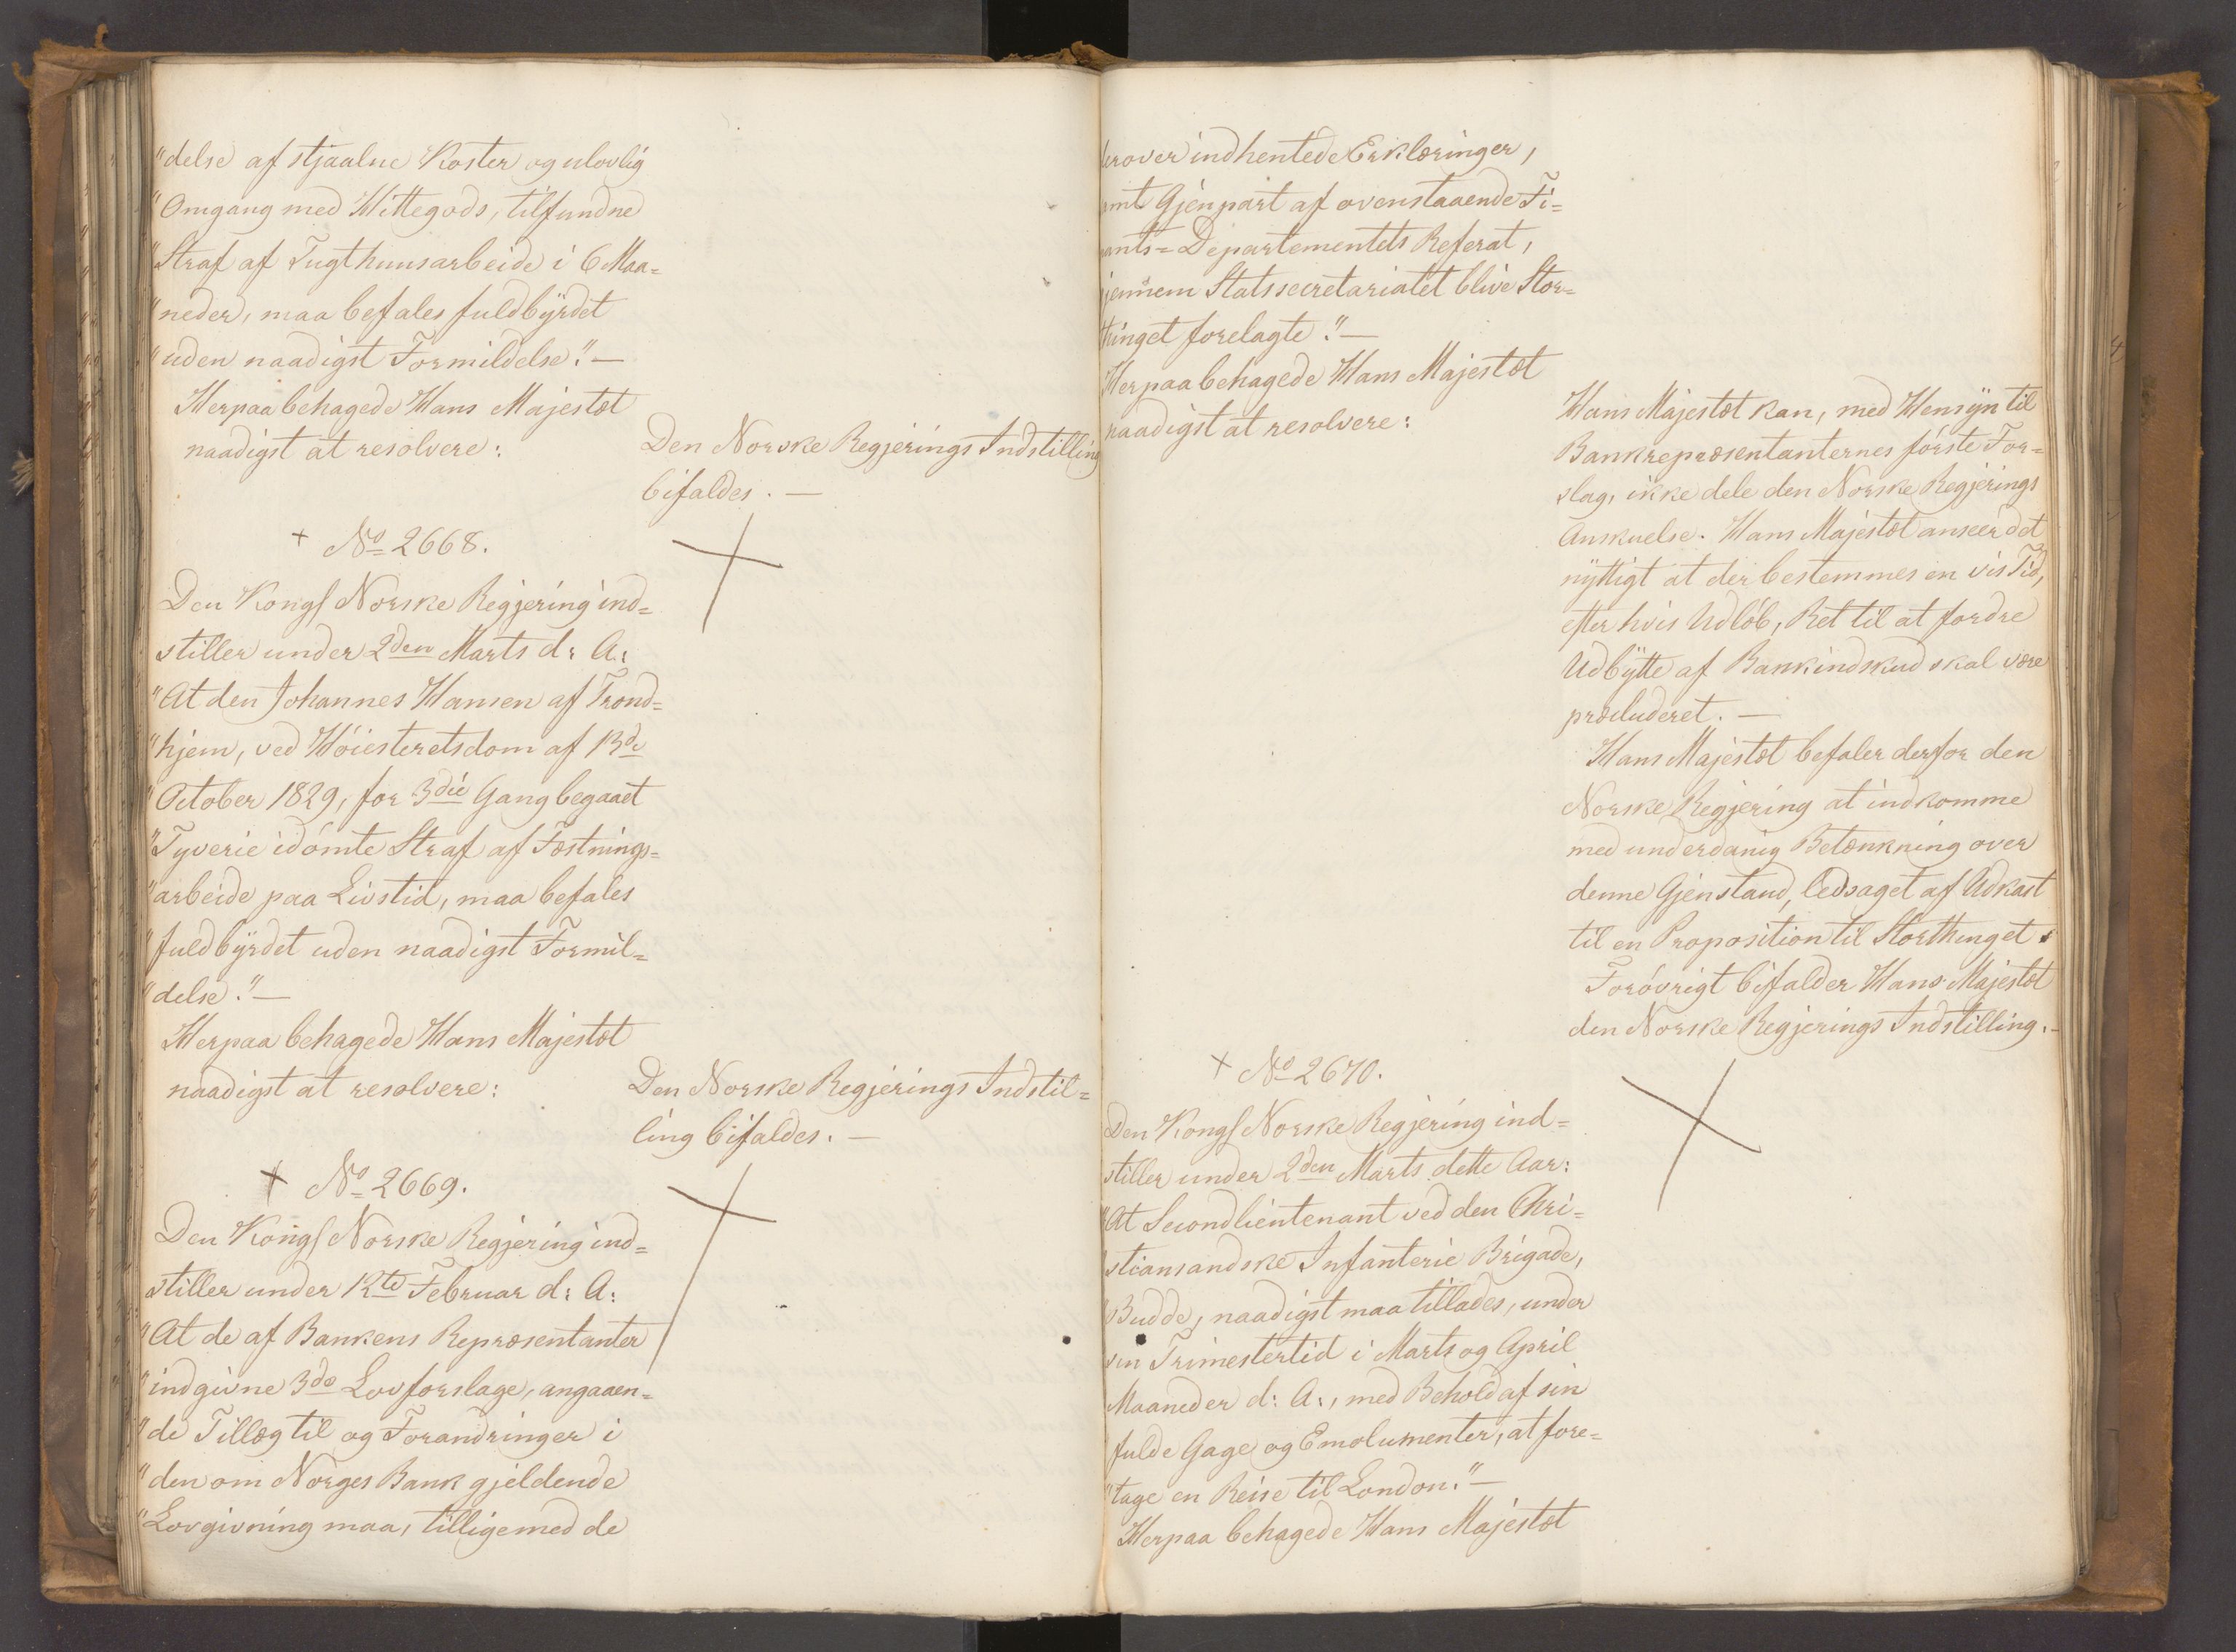 "delse af stjaalne Koster og ulovlig
"Omgang med Hittegods, tilfundne
"Straf af Tugthuusarbeide i 6 Maa=
"neder, maa befales fuldbyrdet
"uden naadigst Formildelse."—
Herpaa behagede Hans Majestæt
naadigst at resolvere:
Den Norske Regjerings Indstilling
bifaldes. —
+ No 2668.
Den Kongl Norske Regjering ind=
stiller under 2den Marts d: A:
"At den Johannes Hansen af Trond=
"hjem, ved Høiesteretsdom af 13de
"October 1829, for 3die Gang begaaet
"Tyverie idømte Straf af Fæstnings=
"arbeide paa Livstid, maa befales
"fuldbyrdet uden naadigst Formil=
"delse."—
Herpaa behagede Hans Majestæt
naadigst at resolvere:
Den Norske Regjerings Indstil=
ling bifaldes. —
+ No 2669.
Den Kongl Norske Regjering ind=
stiller under 12te Februar d: A:
"At de af Bankens Repræsentanter
"indgivne 3de Lovforslage, angaaen=
"de Tillæg til og Forandringer i
"den om Norges Bank gjeldende
"Lovgivning maa, tilligemed de
derover indhentede Erklæringer,
samt Gjenpart af ovenstaaende Fi=
nants=Departementets Referat,
gjennem Statssecretariatet blive Stor=
thinget forelagte."—
Herpaa behagede Hans Majestæt
naadigst at resolvere:
Hans Majestæt kan, med Hensyn til
Bankrepræsentanternes første For=
slag, ikke dele den Norske Regjerings
Anskuelse. Hans Majestæt anseer det
nyttigt at der bestemmes en vis Tid,
efter hvis Udløb, Ret til at fordre
Udbytte af Bankindskud skal være
præcluderet. —
Hans Majestæt befaler derfor den
Norske Regjering at indkomme
med underdanig Betænkning over
denne Gjenstand, ledsaget af Udkast
til en Proposition til Storthinget.
Forøvrigt bifalder Hans Majestæt
den Norske Regjerings Indstilling. —
+ No 2670.
Den Kongl Norske Regjering ind=
stiller under 2den Marts dette Aar:
"At Secondlieutenant ved den Chri=
stiansandske Infanterie Brigade,
"Budde, naadigst maa tillades, under
sin Trimestertid i Marts og April
Maaneder d: A:, med Behold af sin
fulde Gage og Emolumenter, at fore=
"tage en Reise til London."—
Herpaa behagede Hans Majestæt